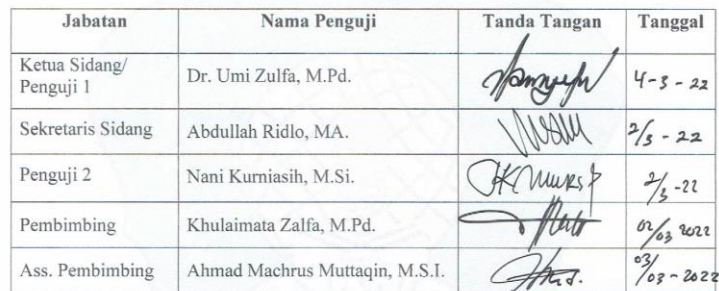 Jabatan Nama Penguji Tanda Tangan Tanggal
Ketua Sidang/
Penguji 1 Dr. Umi Zulfa, M.Pd. 4-3-22
Sekretaris Sidang Abdullah Ridlo, MA. 2/3-22
Penguji 2 Nani Kurniasih, M.Si. 2/3-22
Pembimbing Khulaimata Zalfa, M.Pd. 02/03 2022
Ass. Pembimbing Ahmad Machrus Muttaqin, M.S.I. 03/03-2022